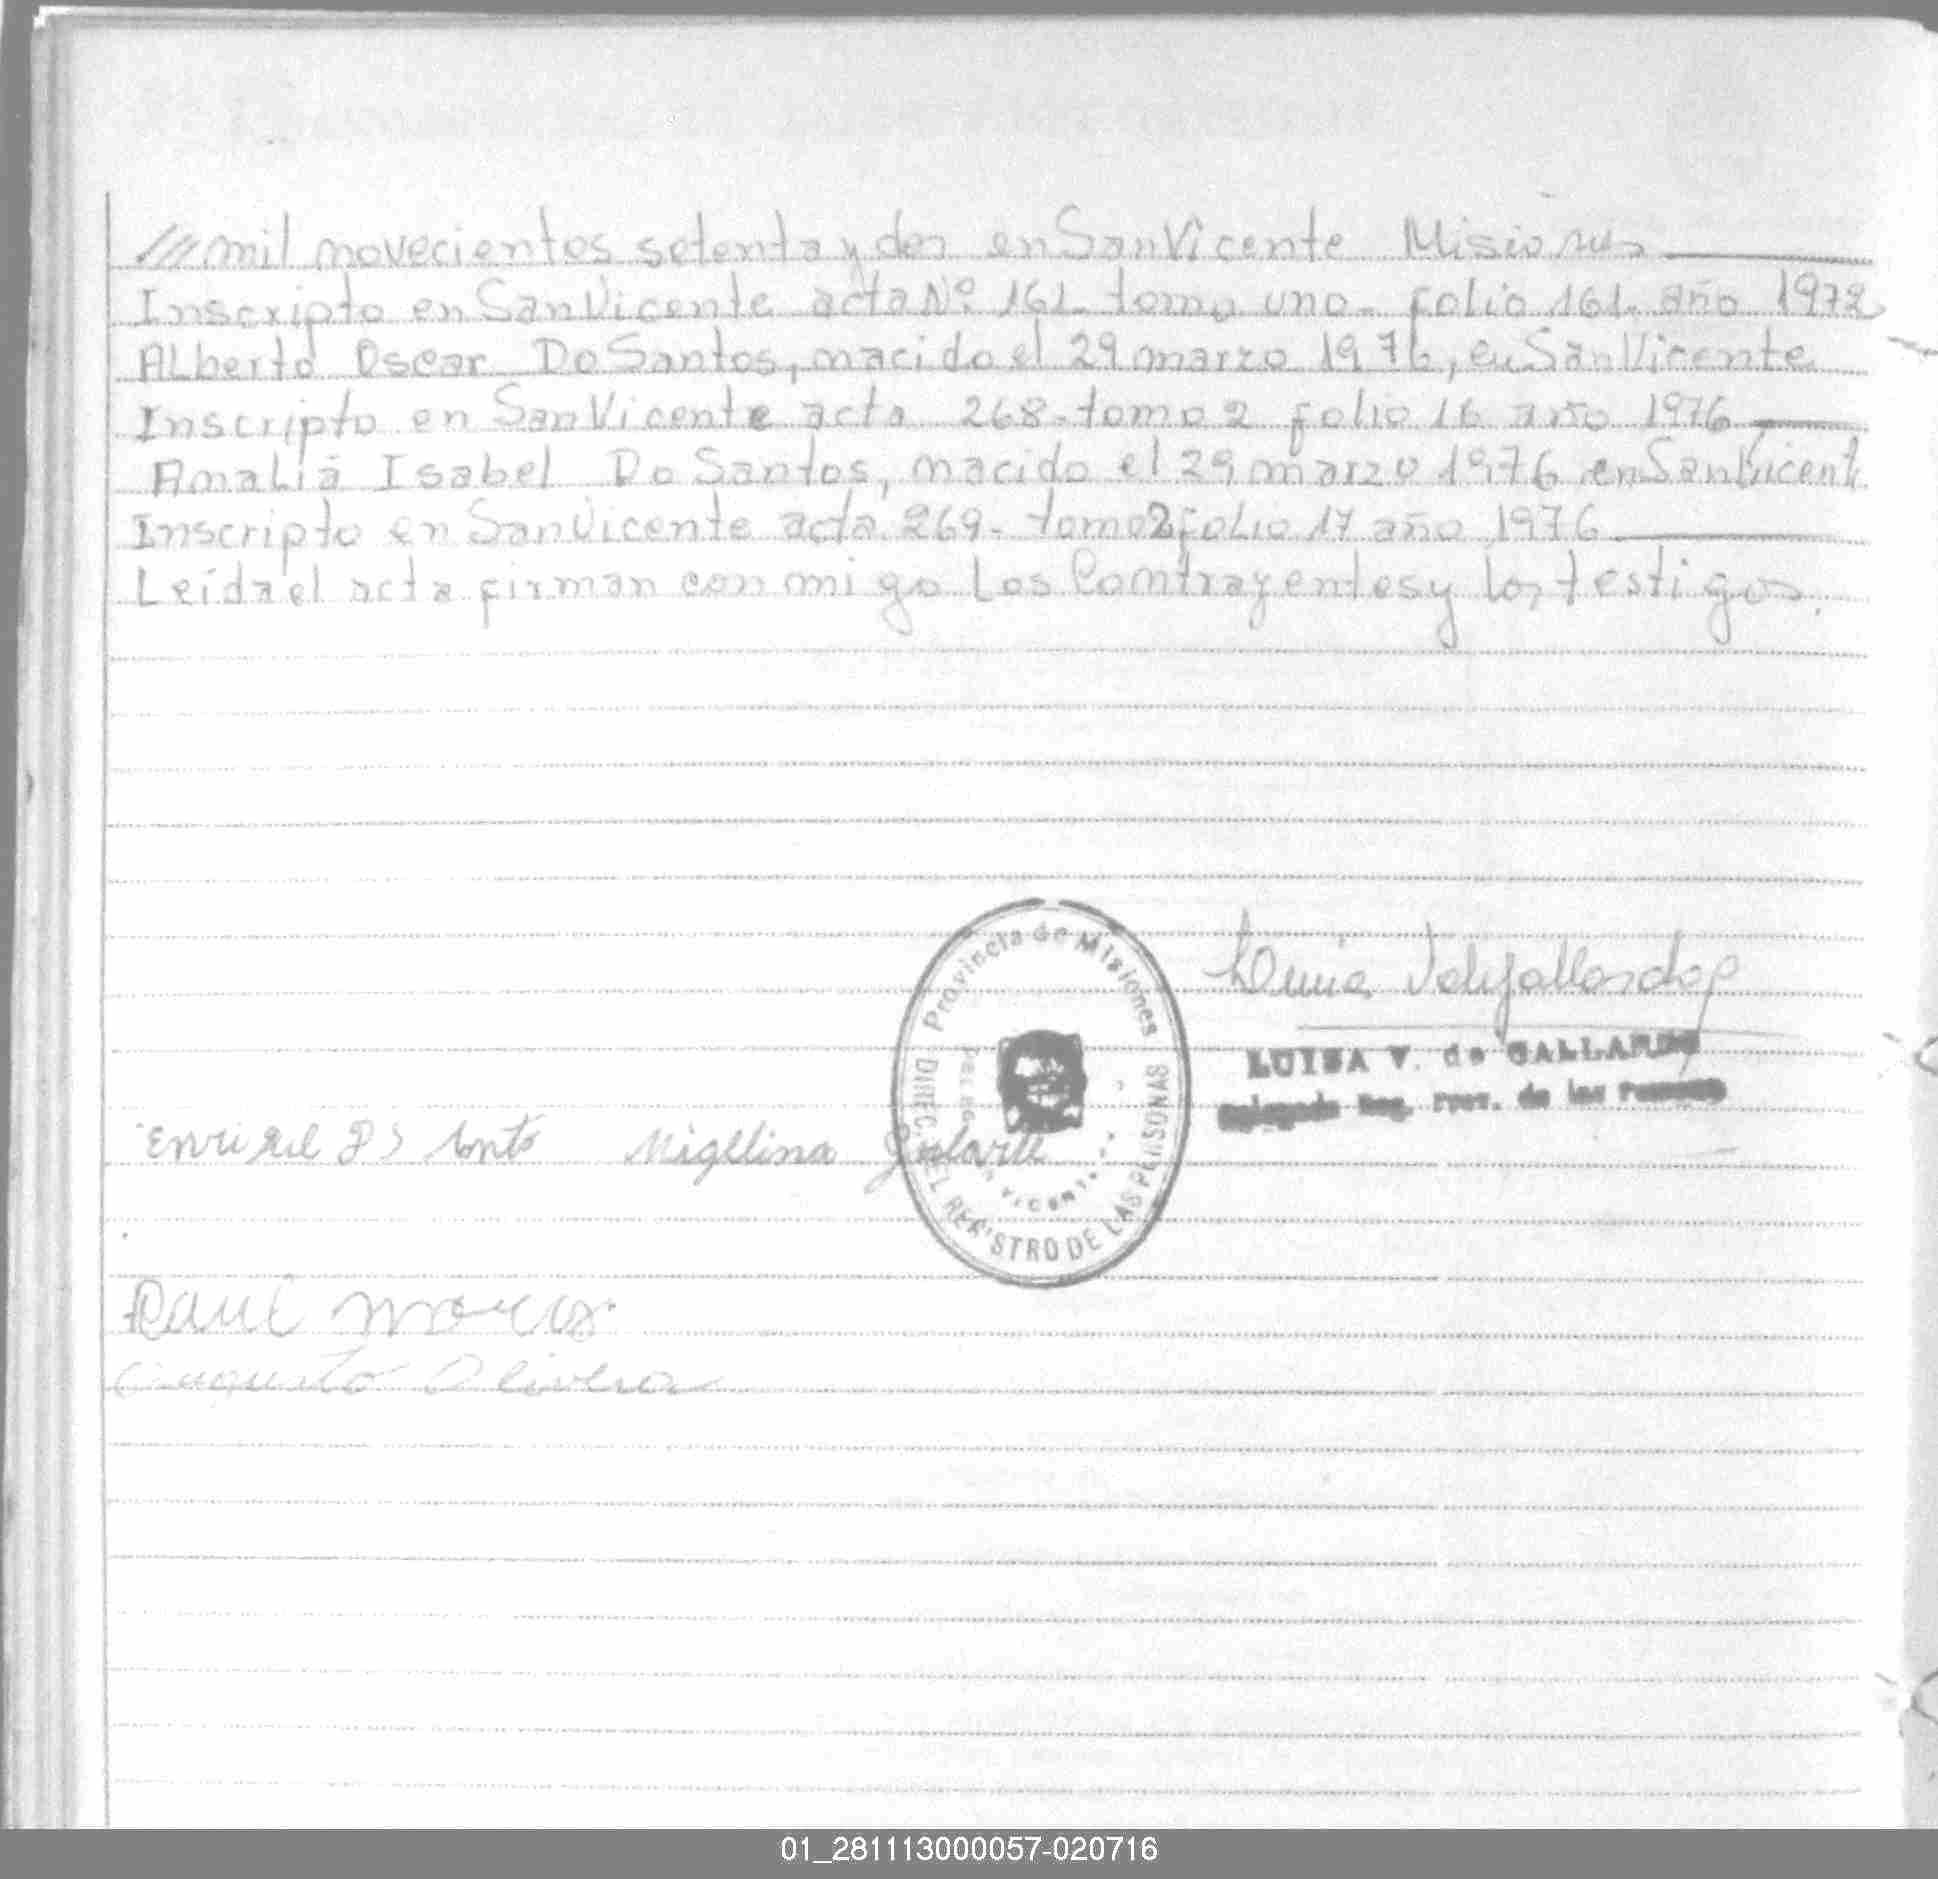 /// mil novecientos setenta y dos en San Vicente Misiones
Inscripto en San Vicente acta Nº 161- tomo uno- folio 161. año 1972
Alberto Oscar Do Santos, nacido el 29 marzo 1976, en San Vicente
Inscripto en San Vicente acta 268- tomo 2 folio 16 año 1976
Amalia Isabel Do Santos, nacido el 29 marzo 1976 en San Vicent
Inscripto en San Vicente acta 269- tomo 2 folio 17 año 1976
Leída el acta firman con migo los Contrayentes y los testigos.
Provincia de Misiones
DIREC. DEL REGISTRO DE LAS PERSONAS
VICENTE
LUISA V. de GALLARDO
Delegada Reg. Prov. de las Personas
Migelina
Raul
Augusto Olivera
01_281113000057-020716